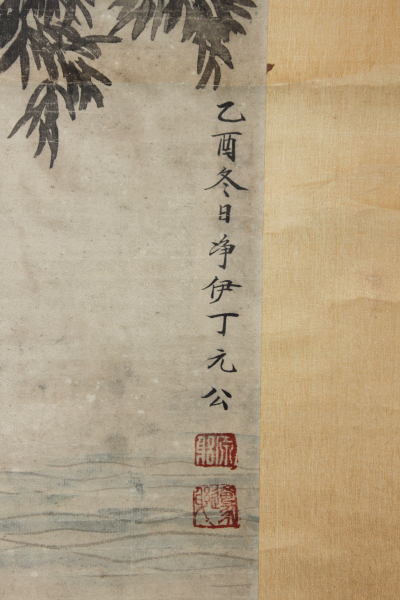 乙酉冬日净伊丁元公